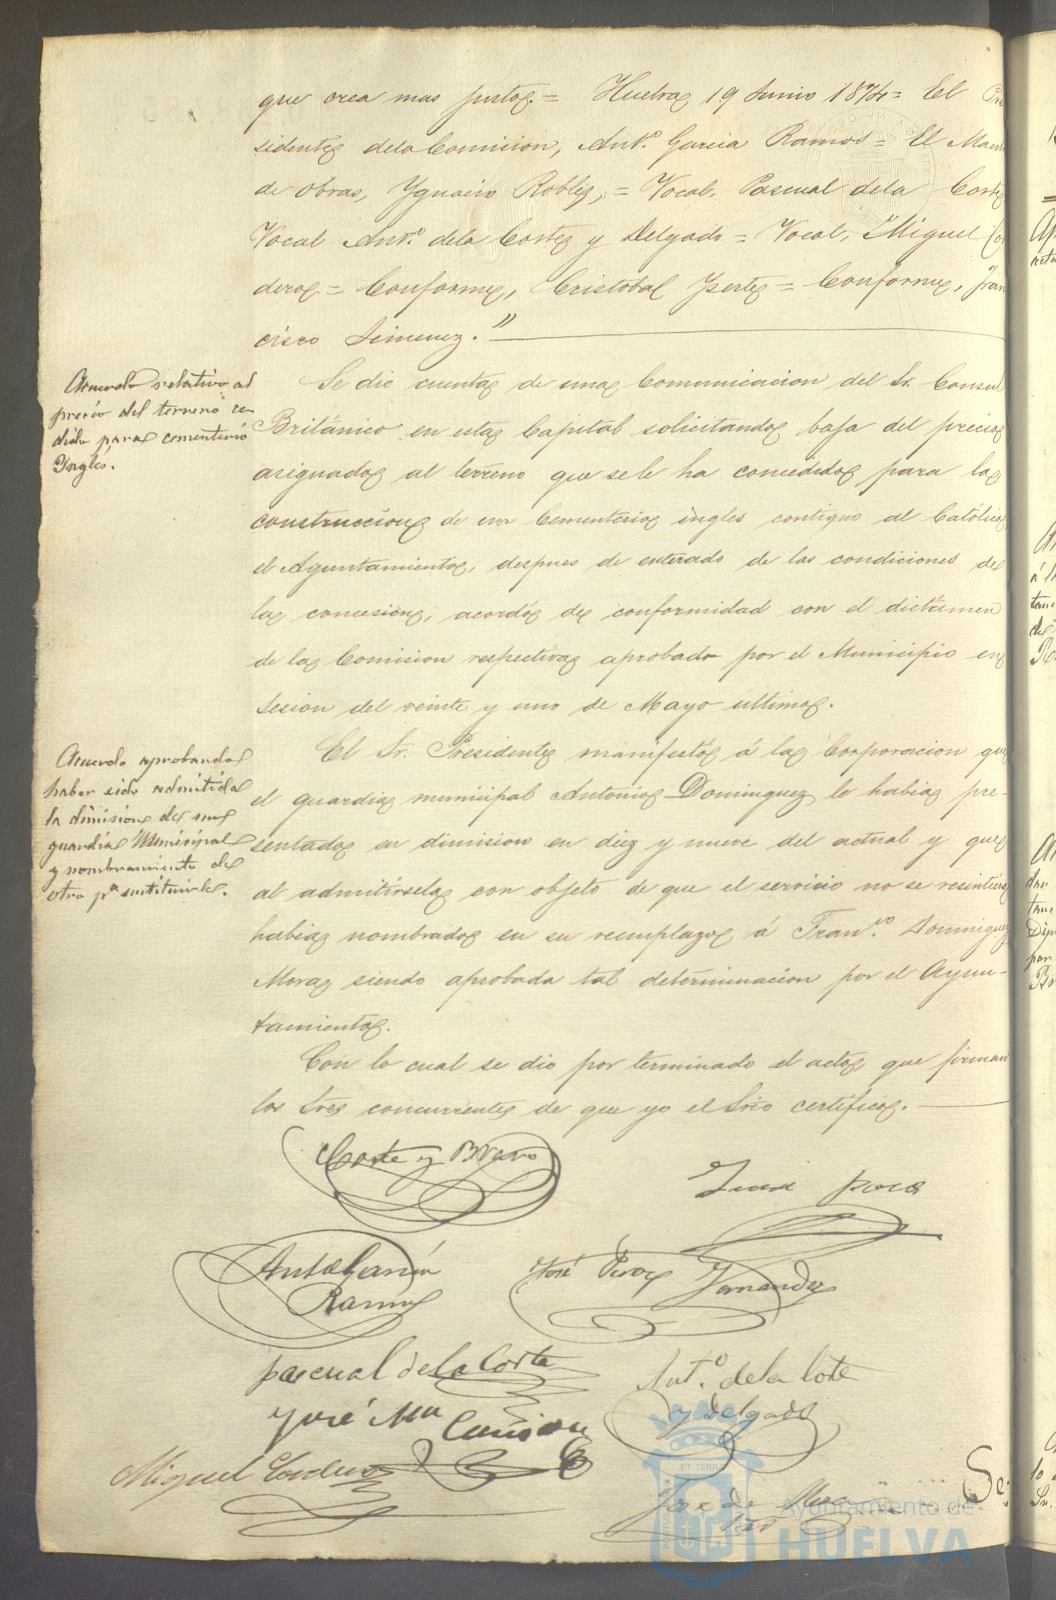 que crea mas justo. = Huelva 19 Junio 1874 = El Pre
sidente de la Comision, Ant.º Garcia Ramos = El Maes
de obras, Ygnacio Robles, = Vocal, Pascual de la Corte
Vocal Ant.º de la Corte y Delgado = Vocal, Miguel Cor
dero = Conforme, Cristobal = Conforme, Fran
cisco Jimenez."
Acuerdo relativo al
precio del terreno ce-
dido para cementerio
Ynglés.
Se dio cuenta de una Comunicacion del Sr. Consul
Británico en esta Capital solicitando baja del precio
asignado al terreno que se le ha concedido para la
construccion de un Cementerio ingles contiguo al Católico
el Ayuntamiento, despues de enterado de las condiciones de
la concesion, acordó de conformidad con el dictámen
de la Comision respectiva aprobado por el Municipio en
Sesion del veinte y uno de Mayo último.
Acuerdo aprobando
haber sido admitida
la dimision de un
guardia Municipal
y nombramiento de
otro pª sustituirle.
El Sr. Presidente manifestó á la Corporacion que
el guardia municipal Antonio Dominguez le habia pre-
sentado su dimision en diez y nueve del actual y que
al admitirsela con objeto de que el servicio no se resintiera
habia nombrado en su reemplazo á Fran.co Dominguez
Mora siendo aprobada tal determinacion por el Ayun-
tamiento.
Con lo cual se dio por terminado el acto que firman
los Sres concurrentes de que yo el Srio certifico.
Corte y Bravo
Juan
Antº Garcia
Ramos
José Fernandez
Pascual de la Corte
Ant.º de la Corte
y Delgado
José Mª
Miguel Cordero
José de
ET TERRÆ
Ayuntamiento de
HUELVA